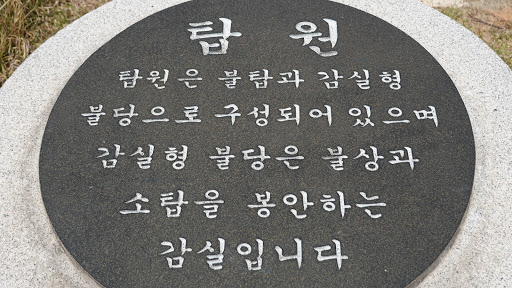 탑 원
탑원은 불탑과 감실형
불당으로 구성되어 있으며
감실형 불당은 불상과
소탑을 봉안하는
감실입니다